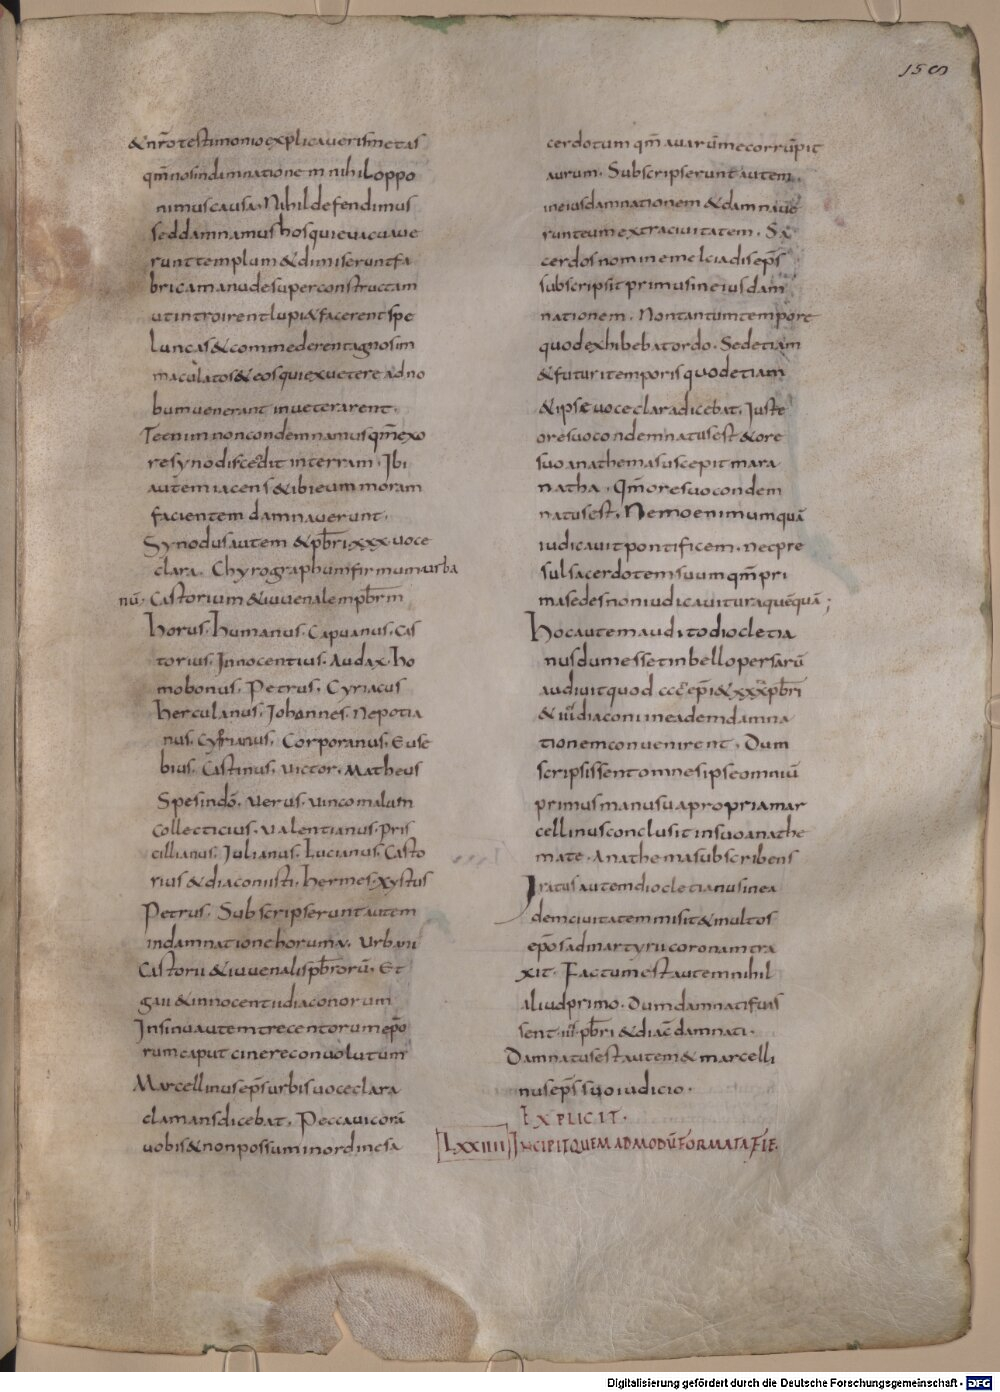 158
& nr̄o testimonio explicaveris metas
qm̄ nos in damnatione m nihil oppo
nimus causa. Nihil defendimus
sed damnamus hos qui evacuave
runt templum & dimiserunt fa
bricam manu desuper constructam
ut introirent lupi & facerent spe
luncas & commederent agnos im
maculatos & eos qui ex vetere ad no
bum venerant inveterarent.
Te enim non condemnamus qm̄ ex o
re synodi scedit in terram. Ibi
autem iacens & ibi eum moram
facientem damnaverunt.
Synodus autem & pb̄ri. xxx. voce
clara. Chyrographum firmum urba
nū; Castorium & iuvenalem pb̄rm
horus. humanus. Capuanus. Cas
torius. Innocentius. Audax. ho
mobonus. Petrus. Cyriacus
herculanus. Johannes. Nepotia
nus. Cyprianus. Corporanus. Euse
bius. Castinus. victor. Matheus
Spesindō. verus. vincomalum
Collecticius. valentianus. pris
cillianus. Julianus. Lucianus. Casto
rius & diacon isti. hermes. xystus
Petrus. Subscripserunt autem
in damnatione horum. Urbani
Castorii & iuvenalis pb̄rorū. Et
gaii & innocentii diaconorum
In sinu autem trecentorum ep̄o
rum caput cinere convolutum
Marcellinus ep̄s urbis voce clara
clamans dicebat. Peccavi corā
vobis & non possum in ordine sa
cerdotum qm̄ avarūm e corrūpit
aurum. Subscripserunt autem
in eius damnationem & damnave
runt eum extra civitatem. Sa
cerdos nomine melciadis ep̄s
subscripsit primus in eius dam
nationem. Non tantum tempore
quod exhibebat ordo. Sed etiam
& futuri temporis quod etiam
& ipse voce clara dicebat. Juste
ore suo condemnatus est & ore
suo anathema suscepit mara
natha. Qm̄ ore suo condem
natus est. Nemo enim umquā
iudicavit pontificem. nec pre
sul sacerdotem suum qm̄ pri
ma sedes non iudicavitur a quēquā;
Hoc autem audito diocletia
nus dum esset in bello persarū
audivit quod ccc ep̄i & xxx pb̄ri
& iii diaconi in eadem damna
tionem convenirent. Dum
scripsissent omnes ipse omniū
primus manu sua propria mar
cellinus conclusit in suo anathe
mate. Anathema subscribens
Iratus autem diocletianus in ea
dem civitatem misit & multos
ep̄os ad martyrii coronam tra
xit. Factum est autem nihil
aliud primo. Dum damnati fuis
sent. iii. pb̄ri & diac̄ damnati.
Damnatus est autem & marcelli
nus ep̄s suo iudicio.
EXPLICIT.
LXXIIII INCIPIT QUEMADMODŪ FORMATA FIE
Digitalisierung gefördert durch die Deutsche Forschungsgemeinschaft - DFG